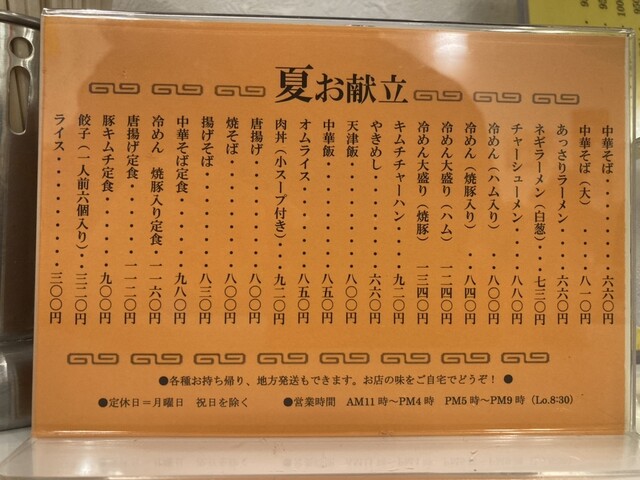 夏お献立
中華そば・・・・・・六六〇円
中華そば（大）・・・・八一〇円
あっさりラーメン・・・・六六〇円
ネギラーメン（白葱）・・・七三〇円
チャーシューメン・・・・八八〇円
冷めん（ハム入り）・・・八〇〇円
冷めん（焼豚入り）・・・八四〇円
冷めん大盛り（ハム）一二四〇円
冷めん大盛り（焼豚）一三四〇円
キムチチャーハン・・・・九二〇円
やきめし・・・・・・・六六〇円
天津飯・・・・・・・・八〇〇円
中華飯・・・・・・・・八五〇円
オムライス・・・・・・八五〇円
肉丼（小スープ付き）・・九二〇円
唐揚げ・・・・・・・・八〇〇円
焼そば・・・・・・・・八〇〇円
揚げそば・・・・・・・八三〇円
中華そば定食・・・・・九八〇円
冷めん 焼豚入り定食・一一六〇円
唐揚げ定食・・・・・一一二〇円
豚キムチ定食・・・・・九〇〇円
餃子（一人前六個入り）・・三二〇円
ライス・・・・・・・・三〇〇円
●各種お持ち帰り、地方発送もできます。お店の味をご自宅でどうぞ！●
●定休日＝月曜日 祝日を除く ●営業時間 AM11時～PM4時 PM5時～PM9時（Lo.8:30）